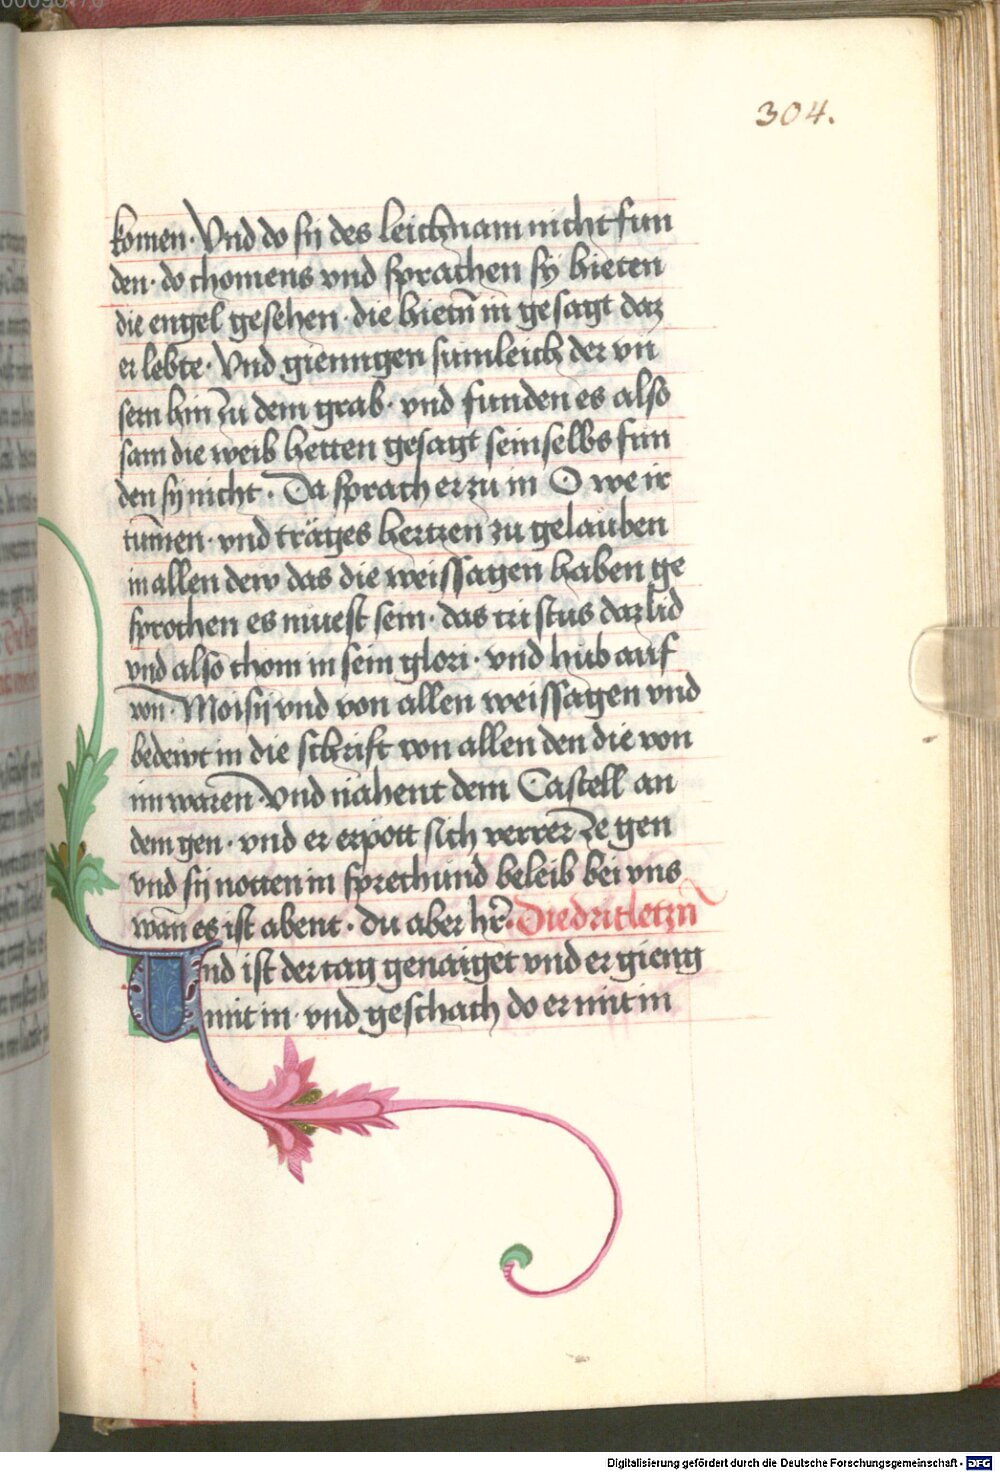 304.
komen · Vnd do sy des leichnam nicht fun
den · do chomens vnd sprachen sy hieten
die engel gesehen · die hietn̄ in gesagt daz
er lebte · Vnd gienngen sümleich der vn
sern hin zu dem grab · vnd funden es also
sam die weib hetten gesagt sein selbs fun
den sy nicht · Da sprach er zu in O we ir
tum̄en · vnd träges hertzen zu gelauben
in allen dew das die weissagen haben ge
sprochen es muest sein · das cristus daz lid
vnd also chom in sein glori · vnd hub auf
von · Moisy vnd von allen weissagen vnd
bedewt in die schrift von allen den die von
im waren · Vnd nahent dem Castell an
dem gen · vnd er erpott sich verrer ze gen
vnd sy notten in sprechund beleib bei vns
wan es ist abent · du aber hr̄ · Die drit letzn̄
Vnd ist der tag genaiget vnd er gieng
mit in · vnd geschach do er mit in
Digitalisierung gefördert durch die Deutsche Forschungsgemeinschaft - DFG